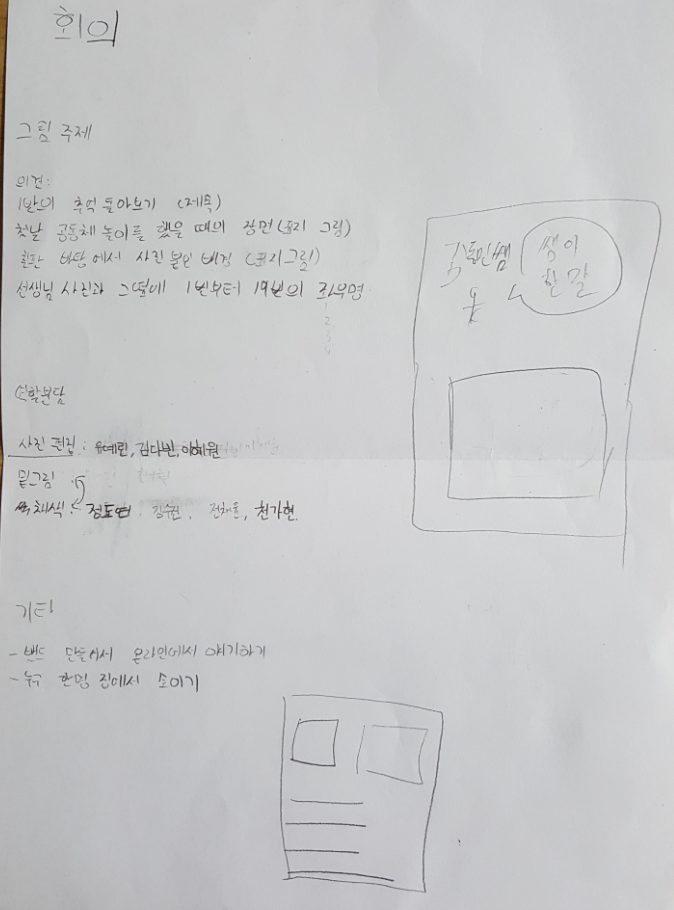 회의
그림 주제
의견:
1반의 추억 돌아보기 (제목)
첫날 공동체 놀이를 했을 때의 장면(표지 그림)
칠판 바탕에서 사진 붙인 배경 (표지그림)
선생님 사진과 그 옆에 1번부터 19번의 좌우명
1
2
3
4
쌤이
한 말
역할분담
사진 편집: 유예린, 김다빈, 이혜원
밑그림
채식: 정도연. 김수현. 전채은, 천가현.
기타
- 밴드 만들어서 온라인에서 얘기하기
- 누구 한명 집에서 모이기